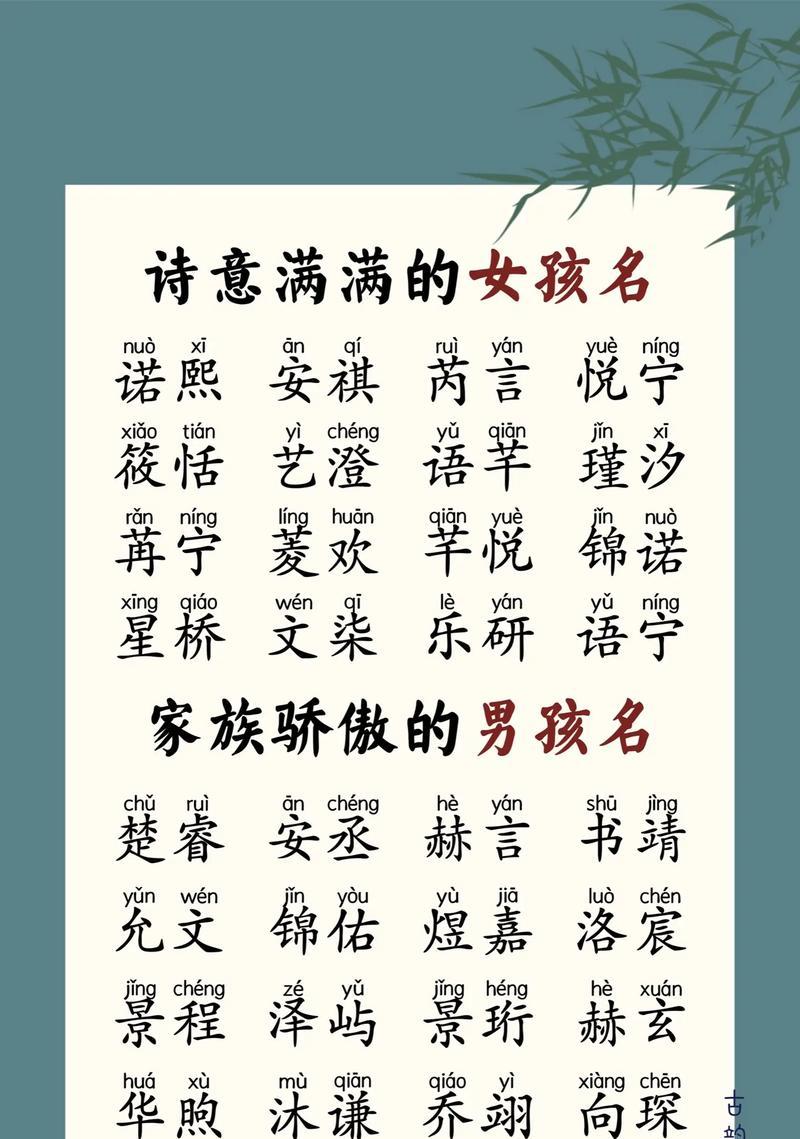 诗意满满的女孩名
nuò xī ān qí ruì yán yuè níng
诺熙 安祺 芮言 悦宁
xiǎo tián yì chéng yǔ qiān jǐn xī
筱恬 艺澄 语芊 瑾汐
rǎn níng líng huān qiān yuè jǐn nuò
苒宁 菱欢 芊悦 锦诺
xīng qiáo wén qī lè yán yǔ níng
星桥 文柒 乐研 语宁
家族骄傲的男孩名
chǔ ruì ān chéng hè yán shū jìng
楚睿 安丞 赫言 书靖
yǔn wén jǐn yòu yù jiā luò chén
允文 锦佑 煜嘉 洛宸
jǐng chéng zé yǔ jǐng héng hè xuán
景程 泽屿 景珩 赫玄
huá xù mù qiān qiáo yì xiàng chēn
华煦 沐谦 乔翊 向琛
古韵